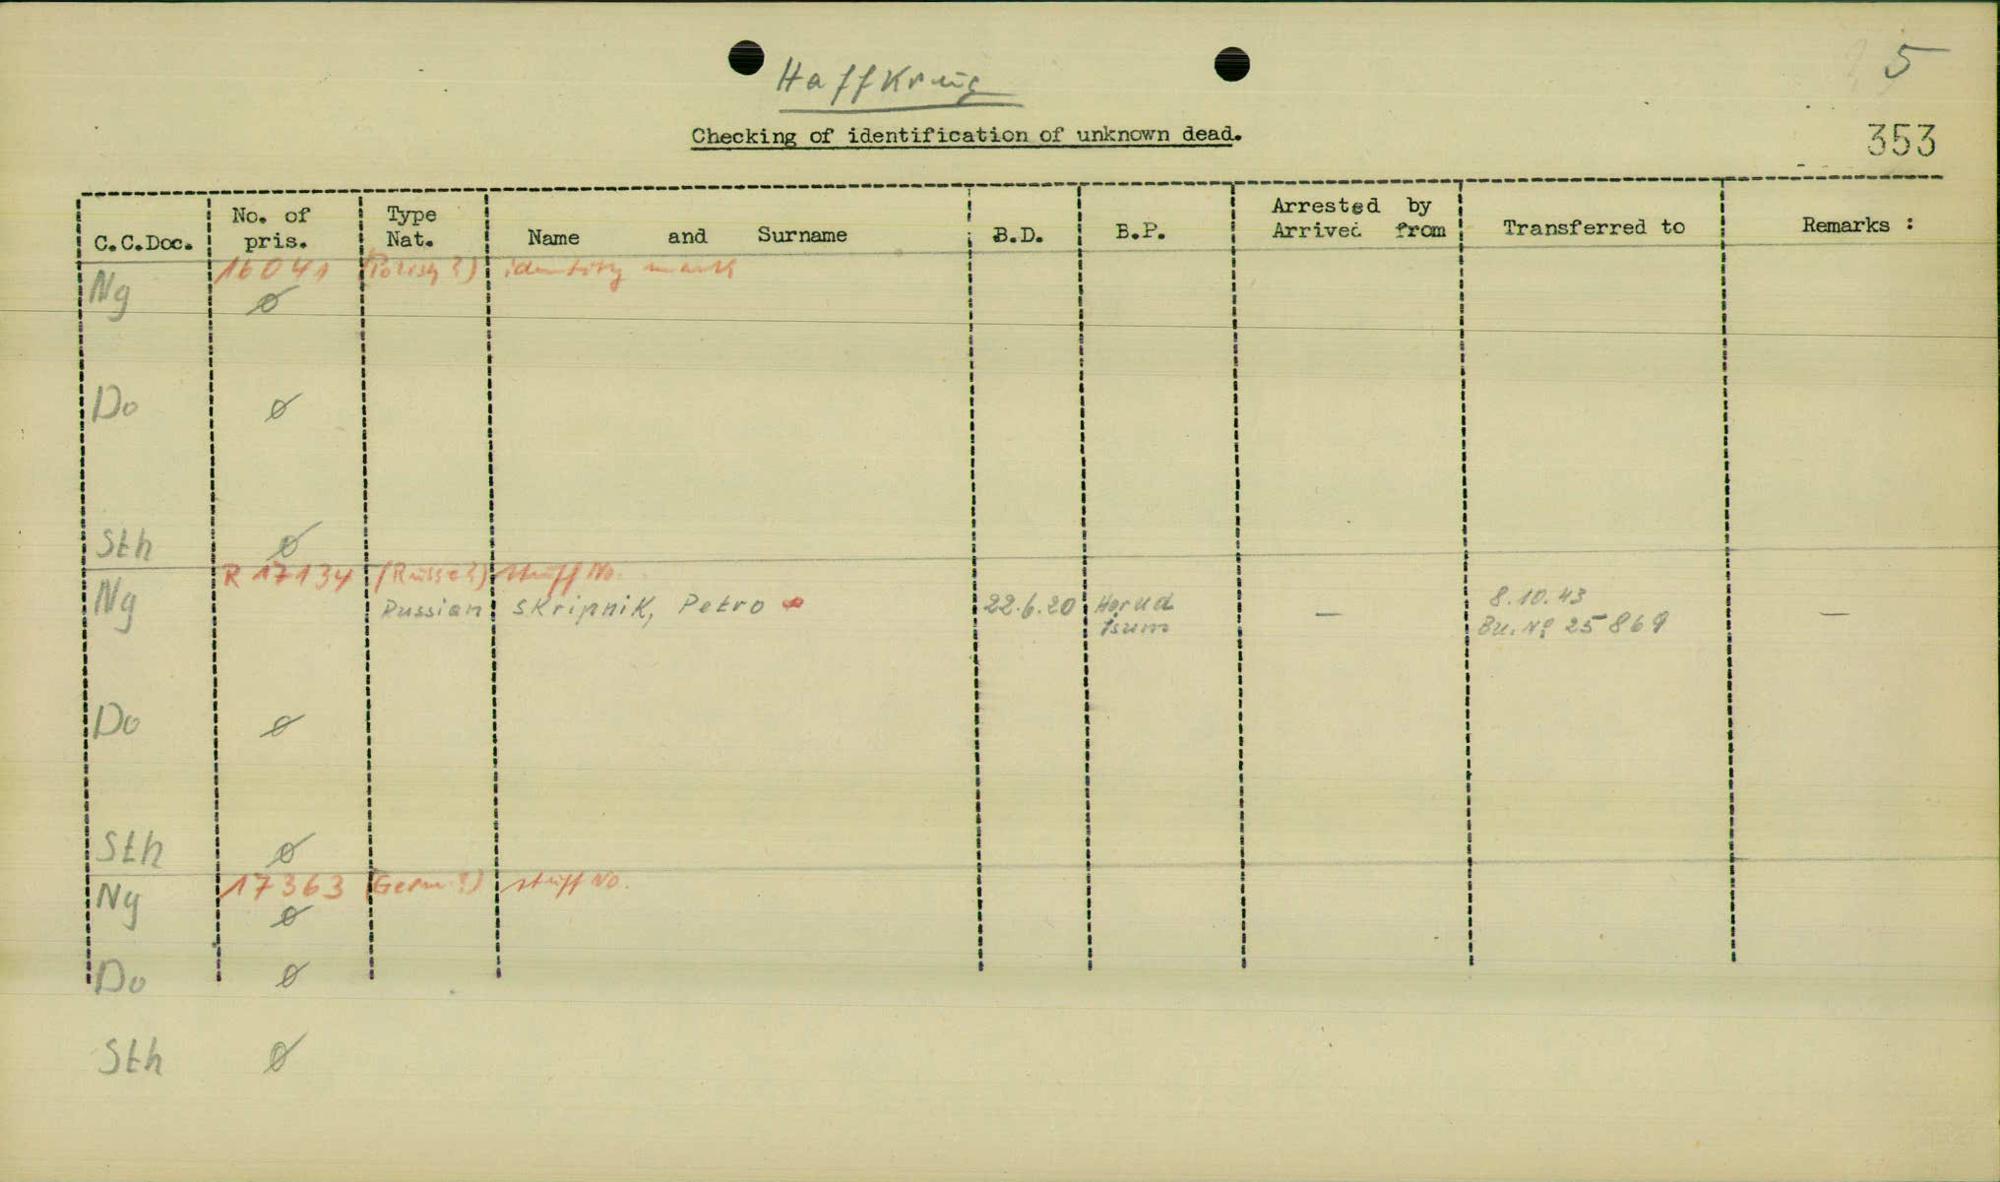 Haffkrug
5
353
Checking of identification of unknown dead.
C.C.Doc. No. of pris. Type Nat. Name and Surname B.D. B.P. Arrested by Arrived from Transferred to Remarks :
16041 (Polish?) identity mark
Ng ø
Do ø
Sth ø
R 17134 (Russe?) stuff No.
Ng Russian Skripnik, Petro 22.6.20 — 8.10.43 —
Isum Bu. No 25869
Do ø
Sth ø
17363 (Germ?) stuff No.
Ng ø
Do ø
Sth ø